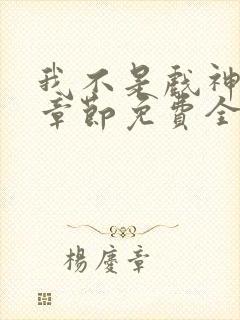 我不是戲神
章節免費全
楊慶章